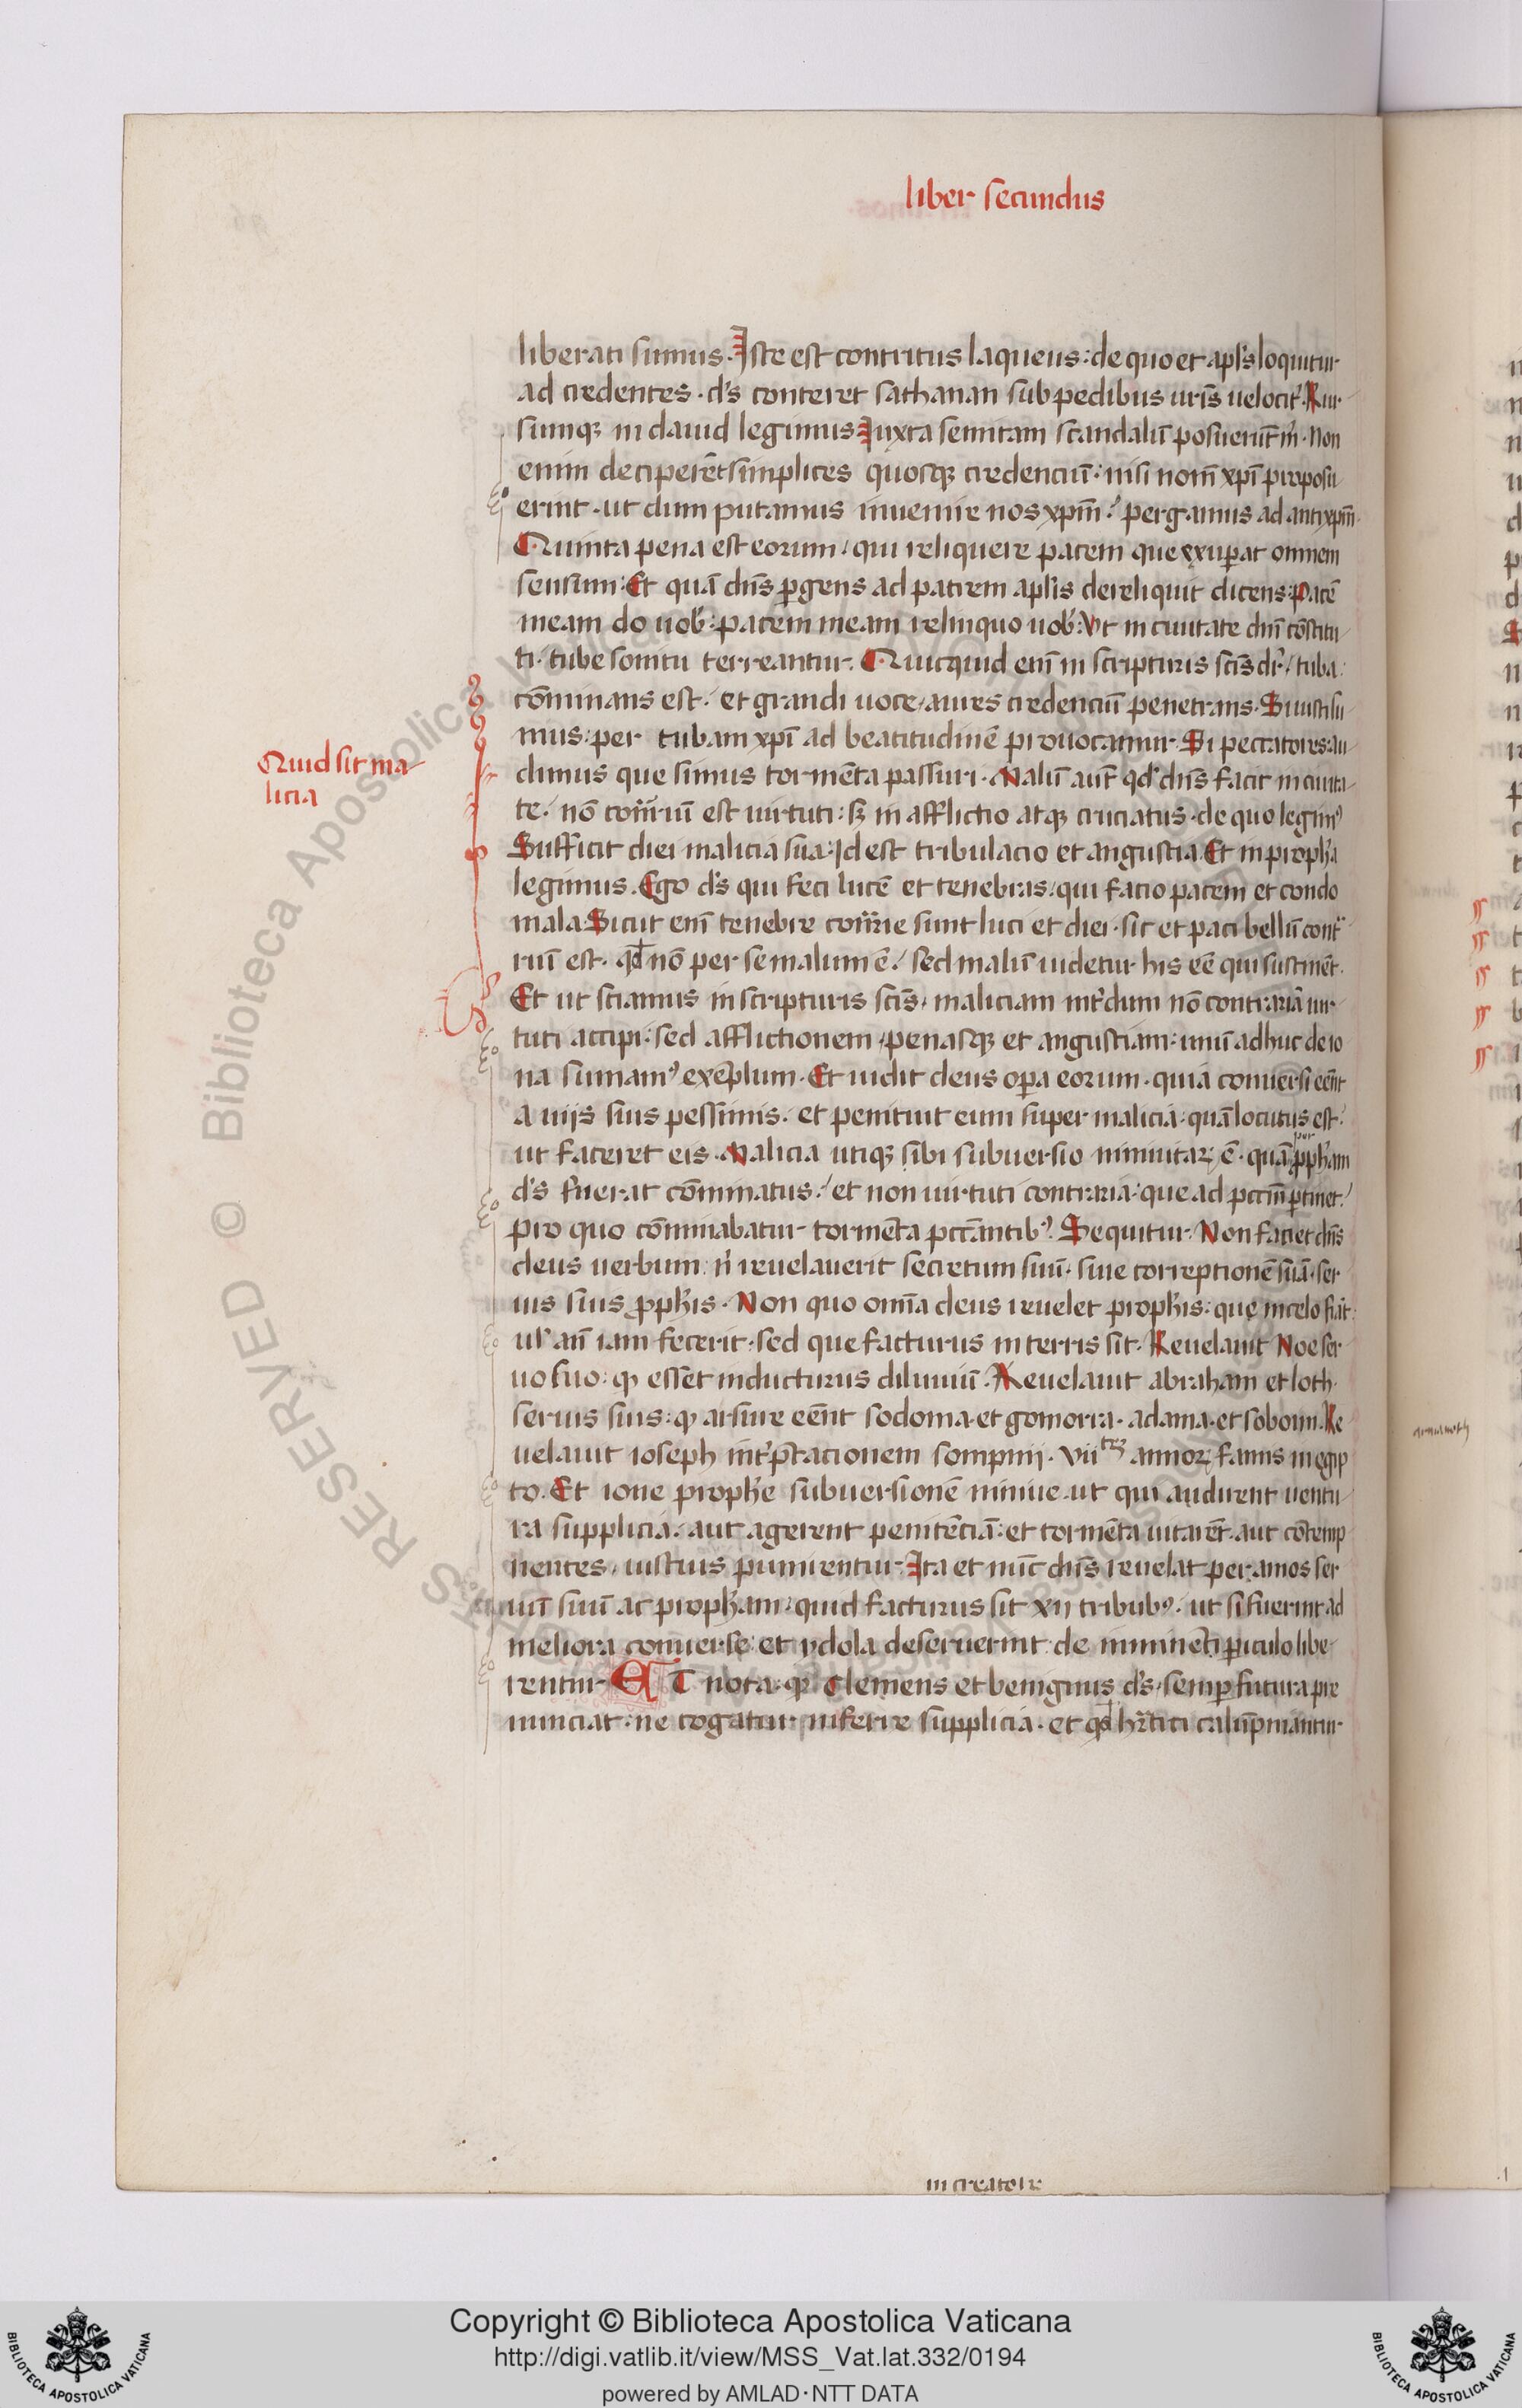 liber secundus
liberati sumus. Iste est contritus laqueus: de quo et apl's loquitur
ad credentes. d's conteret sathanan sub pedibus ur̄is uelocit'. Rur
sumqꝫ in dauid legimus Iuxta semitam scandalū posuerūt m̄. Non
enim deciperēt simplices quosqꝫ credenciū: nisi nom̄ xp̄i proposu
erint. ut dum putamus inuenire nos xp̄m: pergamus ad antixp̄m.
Quinta pena est eorum, qui reliquere pacem que exup̱at omnem
sensum: Et quā dn̄s ꝑgens ad patrem apl'is dereliquit dicens: Pacē
meam do uob': pacem meam relinquo uob': Vt in ciuitate dn̄i cōstitu
ti, tube sonitu terreantur. Quicquid enī in scripturis sc̄is dr̄, tuba:
cōminans est, et grandi uoce, aures credenciū penetrans. Si iusti su
mus: per tubam xp̄i ad beatitudinē prouocamur. Si peccatores: au
dimus que simus tormēta passuri. Malū aut̄ qd' dn̄s facit in ciuita
Quid sit ma
licia
te, nō cōr̄riū est uirtuti: sꝫ in afflictio atqꝫ cruciatus. de quo legimꝰ
Sufficit diei malicia sua: Id est tribulacio et angustia. Et in proph'a
legimus. Ego d's qui feci lucē et tenebras, qui facio pacem et condo
mala. Sicut enī tenebre cōr̄rie sunt luci et diei. sic et paci bellū cont
riū est. qd nō per se malum ē, sed malū uidetur his eē qui sustinēt.
Et ut sciamus in scripturis sc̄is, maliciam int'dum nō contrariā uir
tuti accipi: sed afflictionem, penasqꝫ et angustiam: unū adhuc de io
na sumamꝰ exēplum. Et uidit deus oꝑa eorum. quia conuersi eēnt
a uijs suis pessimis. et penituit eum super malicia. quā locutus est.
ut faceret eis. Malicia utiqꝫ sibi subuersio niniuitaꝝ ē. quā per pph'am
d's fuerat cōminatus, et non uirtuti contraria: que ad pccm̄ ꝑtinet.
pro quo cōminabatur tormēta pccantibꝰ. Sequitur. Non faciet dn̄s
deus uerbum: n' reuelauerit secretum suū. siue correptionē suā. ser
uis suis pph'is. Non quo om̄ia deus reuelet proph'is: que in celo fiūt:
ul' an̄ iam fecerit. sed que facturus in terris sit. Reuelauit Noe ser
uo suo: qꝫ esset inducturus diluuiū. Reuelauit abraham et loth.
seruis suis: qꝫ arsure eēnt sodoma et gomorra. adama. et soboim. Re
uelauit ioseph int'p̄tacionem sompnij. vii annoꝝ famis in egip
to. Et ione proph'e subuersionē niniue. ut qui audirent uentu
ra supplicia, aut agerent penitēciā: et tormēta uitarēt. aut cōtemp
nentes, iustius punirentur. Ita et nūc dn̄s reuelat per amos ser
uū suū ac proph'am: quid facturus sit xij tribubꝰ. ut si fuerint ad
meliora conuerse: et ydola deseruerint: de iminēti ꝑiculo libe
rentur. ET nota. qꝫ Clemens et benignus d's. semꝑ futura pre
nunciat. ne cogatur inferre supplicia. et qd hr̄etici calūpniantur
in creatore
Copyright © Biblioteca Apostolica Vaticana
http://digi.vatlib.it/view/MSS_Vat.lat.332/0194
powered by AMLAD·NTT DATA